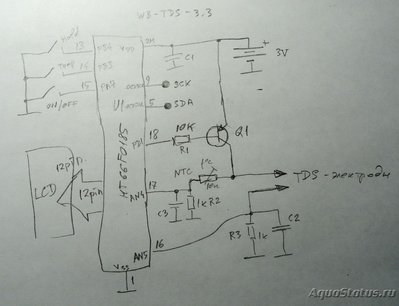 WB-TDS-3,3
Hold
13
PB4
VDD
24
C1
+
3V
14
PB3
15
PA7
9
SCK
ON/OFF
5
SDA
HT66F0185
18
PB1
10K
R1
Q1
12pin
LCD
12pin
NTC
t°c
10k
TDS-электроды
17
AN4
C3
1k R2
16
AN5
R3
1k
C2
Vss
1
AquaStatus.ru